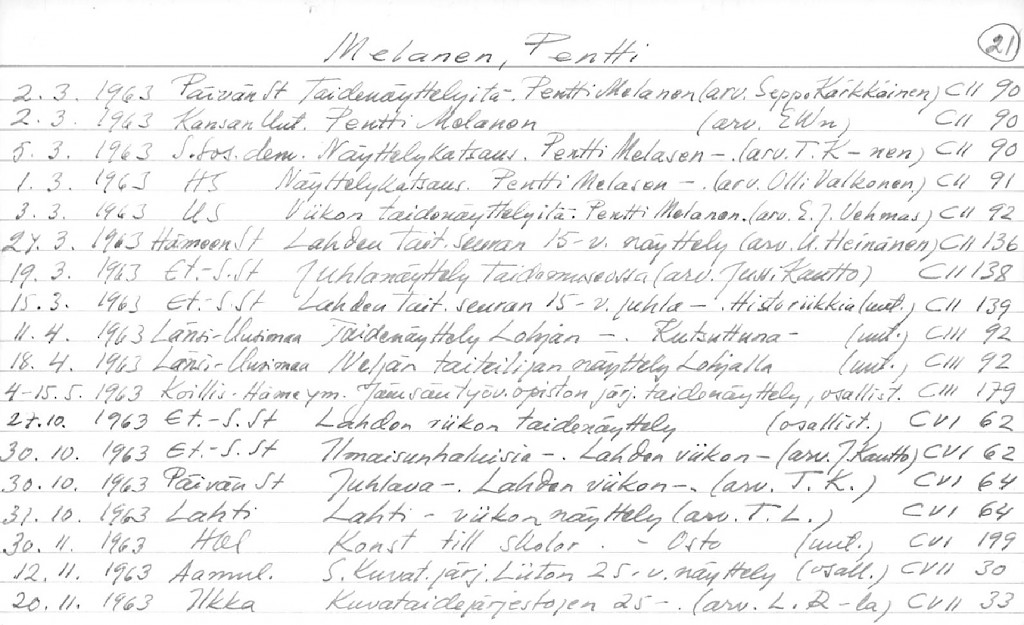 21
Melanen, Pentti
2.3. 1963 Päivän St Taidenäyttelyitä. Pentti Melanen (arv. Seppo Kärkkäinen) CII 90
2.3. 1963 Kansan Uut. Pentti Melanen (arv. EWn) CII 90
5.3. 1963 S.Sos.dem. Näyttelykatsaus. Pentti Melasen -. (arv. T. K-nen) CII 90
1.3. 1963 HS Näyttelykatsaus. Pentti Melasen -. (arv. Olli Valkonen) CII 91
3.3. 1963 US Viikon taidenäyttelyitä. Pentti Melanen. (arv. E.J. Vehmas) CII 92
27.3. 1963 Hämeen St Lahden Tait. seuran 15-v. näyttely (arv. U. Heinänen) CII 136
19.3. 1963 Et.-S.St Juhlanäyttely Taidemuseossa (arv. Jussi Kautto) CII 138
15.3. 1963 Et.-S.St Lahden Tait. seuran 15-v. juhla -. Historiikkia (uut.) CII 139
11.4. 1963 Länsi-Uusimaa Taidenäyttely Lohjan -. Kutsuttuna - (uut.) CIII 92
18.4. 1963 Länsi-Uusimaa Neljän taiteilijan näyttely Lohjalla (uut.) CIII 92
4-15.5. 1963 Koillis-Häme ym. Jämsän työv.opiston järj. taidenäyttely, osallist. CIII 179
27.10. 1963 Et.-S.St Lahden viikon taidenäyttely (osallist.) CVI 62
30.10. 1963 Et.-S.St Ilmaisunhaluisia -. Lahden viikon - (arv. J. Kautto) CVI 62
30.10. 1963 Päivän St Juhlava -. Lahden viikon -. (arv. T. K.) CVI 64
31.10. 1963 Lahti Lahti - viikon näyttely (arv. T. L.) CVI 64
30.11. 1963 Hbl Konst till skolor. - Osto (uut.) CVI 199
12.11. 1963 Aamul. S.Kuvat.järj. Liiton 25-v. näyttely (osall.) CVII 30
20.11. 1963 Ilkka Kuvataidejärjestöjen 25 -. (arv. L. R-la) CVII 33